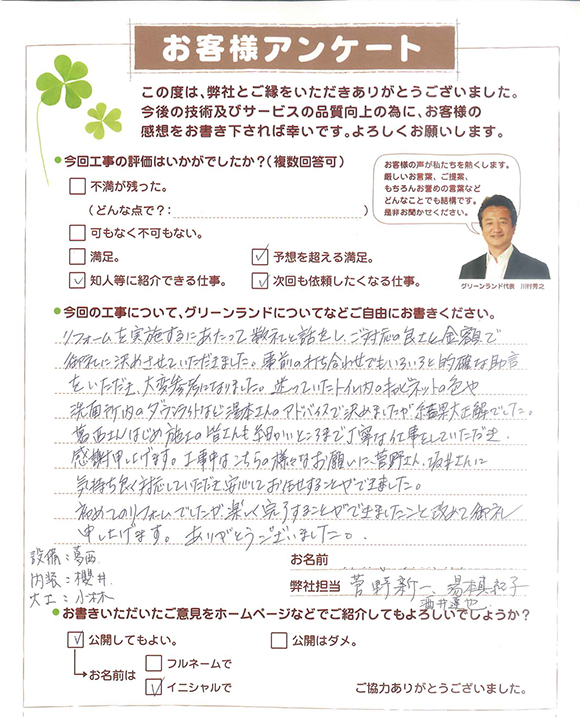 お客様アンケート
この度は、弊社とご縁をいただきありがとうございました。
今後の技術及びサービスの品質向上の為に、お客様の
感想をお書き下されば幸いです。よろしくお願いします。
今回工事の評価はいかがでしたか？（複数回答可）
不満が残った。
（どんな点で？：　）
可もなく不可もない。
満足。
予想を超える満足。
知人等に紹介できる仕事。
次回も依頼したくなる仕事。
お客様の声が私たちを熱くします。
厳しいお言葉、ご提案、
もちろんお誉めの言葉など
どんなことでも結構です。
是非お聞かせください。
グリーンランド代表　川村秀之
今回の工事について、グリーンランドについてなどご自由にお書きください。
リフォームを実施するにあたって数社と話をし、ご対応の良さと金額で
御社に決めさせていただきました。事前の打ち合わせでもいろいろと的確な助言
をいただき、大変参考になりました。迷っていたトイレ内のキャビネットの色や
洗面所内のダウンライトなど湯本さんのアドバイスで決めましたが、結果大正解でした。
葛西さんはじめ施工の皆さんも細かいところまで丁寧な仕事をしていただき、
感謝申し上げます。工事中はこちらの様々なお願いに、菅野さん、坂井さんに
気持ち良く対応していただき、安心してお任せすることができました。
初めてのリフォームでしたが、楽しく完了することができましたこと改めて御礼
申し上げます。ありがとうございました。
設備：葛西
内装：櫻井
大工：小林
お名前
弊社担当　菅野新一、湯本真紀子
酒井達也
お書きいただいたご意見をホームページなどでご紹介してもよろしいでしょうか？
公開してもよい。
公開はダメ。
お名前は
フルネームで
イニシャルで
ご協力ありがとうございました。